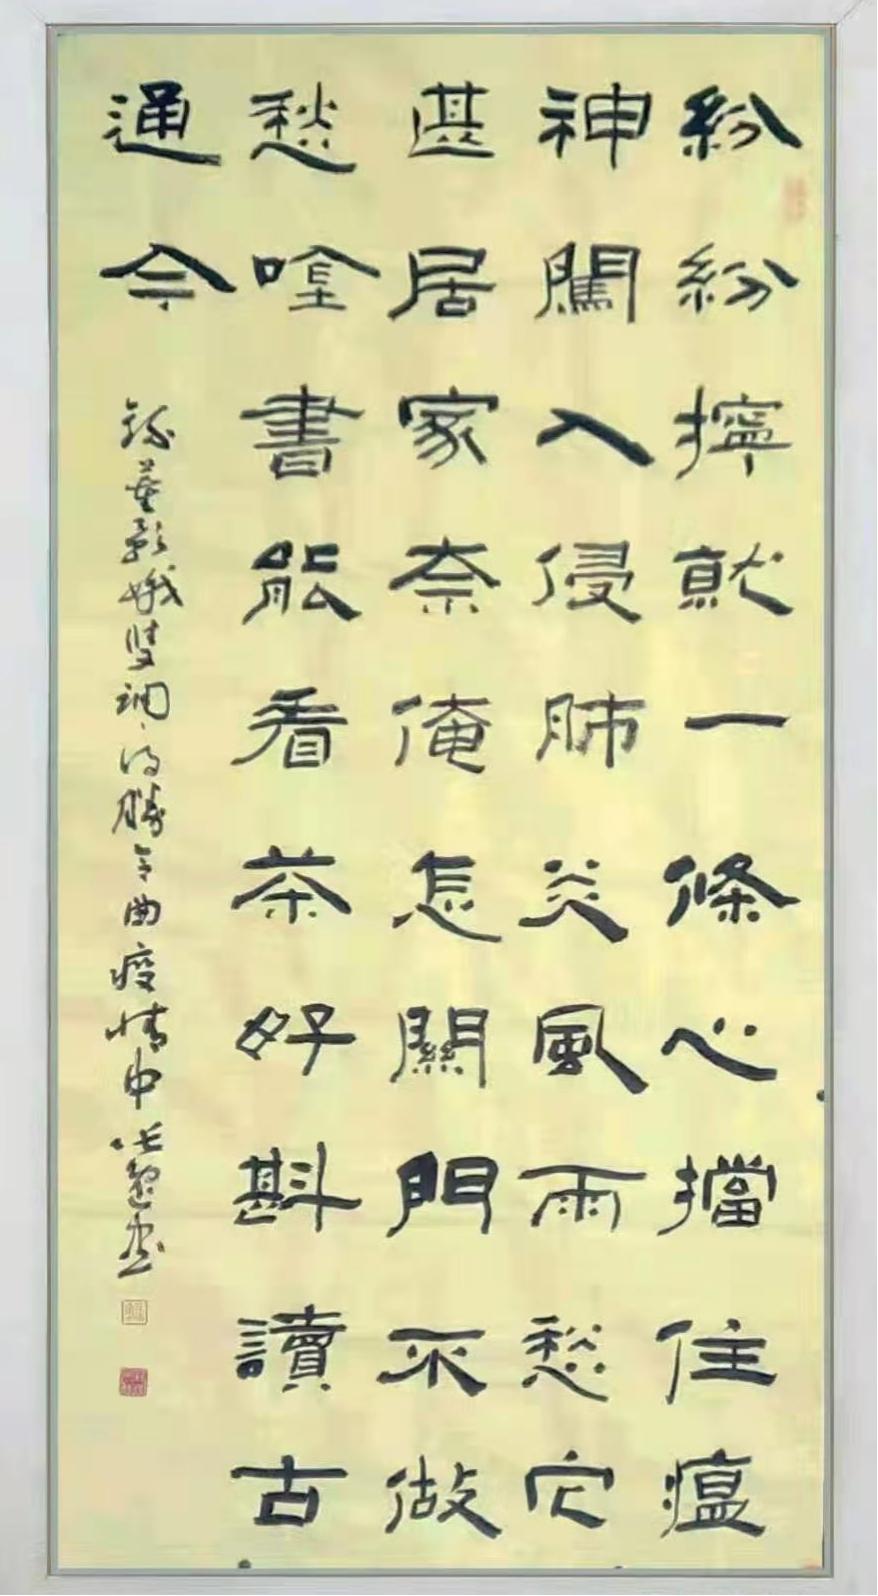 紛紛擰就一條心擋住瘟
神闖入侵肺炎風雨愁它
甚居家奈俺怎關門不做
愁唫書能看茶好斟讀古
通今
錄董娥雙調得勝令曲疫情中書